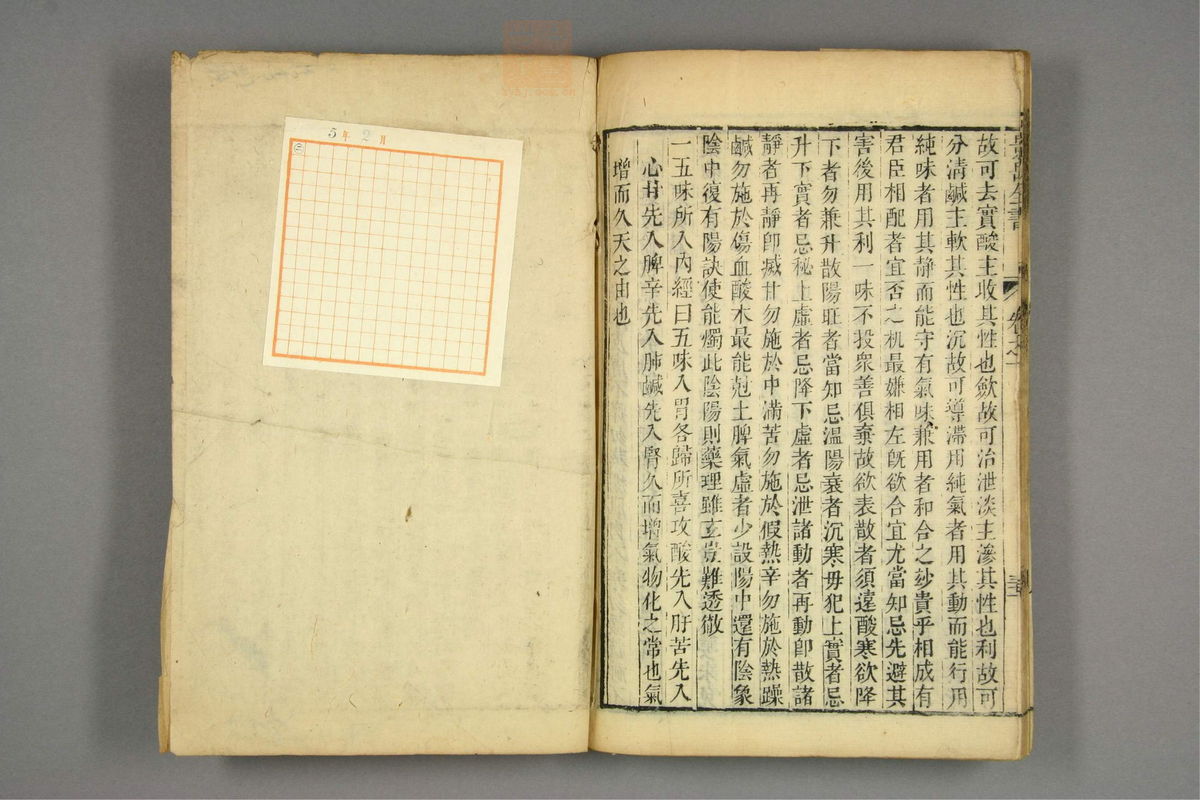 故可去實酸主收其性也歛故可治泄淡主滲其性也利故可
分淸鹹主軟其性也沉故可導滯用純氣者用其動而能行用
純味者用其静而能守有氣味兼用者和合之妙貴乎相成有
君臣相配者宜否之机最嫌相左旣欲合宜尤當知忌先避其
害後用其利一味不投衆善俱棄故欲表散者須遠酸寒欲降
下者勿兼升散陽旺者當知忌溫陽衰者沉寒毋犯上實者忌
升下實者忌秘上虛者忌降下虛者忌泄諸動者再動卽散諸
靜者再靜卽滅甘勿施於中滿苦勿施於假熱辛勿施於熱躁
鹹勿施於傷血酸木最能尅土脾氣虛者少設陽中還有陰象
陰中復有陽訣使能燭此陰陽則藥理雖玄豈難透徹
一五味所入內經曰五味入胃各歸所喜攻酸先入肝苦先入
心甘先入脾辛先入肺鹹先入腎久而增氣物化之常也氣
增而久夭之由也
5年2月